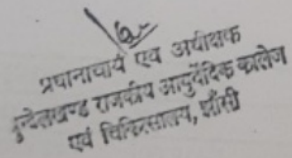 प्रधानाचार्य एवं अधीक्षक
बुन्देलखण्ड राजकीय आयुर्वेदिक कालेज
एवं चिकित्सालय, झाँसी